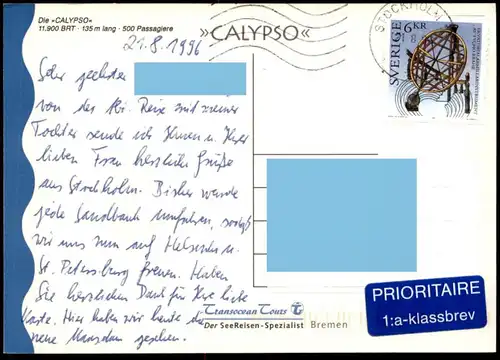 Die »CALYPSO«
11.900 BRT · 135 m lang · 500 Passagiere
21.8.1996
»CALYPSO«
STOCKHOLM
SVERIGE 6KR
Sehr geehrter
von der Reise mit meiner
Tochter sende ich Ihnen u. Ihrer
lieben Frau herzliche Grüße
aus Stockholm. Bisher wurde
jede Sandbank umfahren, sodaß
wir uns nun auf Helsinki u.
St. Petersburg freuen. Haben
Sie herzlichen Dank für Ihre liebe
Karte. Hier haben wir heute das
neue Museum gesehen.
Transocean Tours
Der SeeReisen-Spezialist Bremen
PRIORITAIRE
1:a-klassbrev